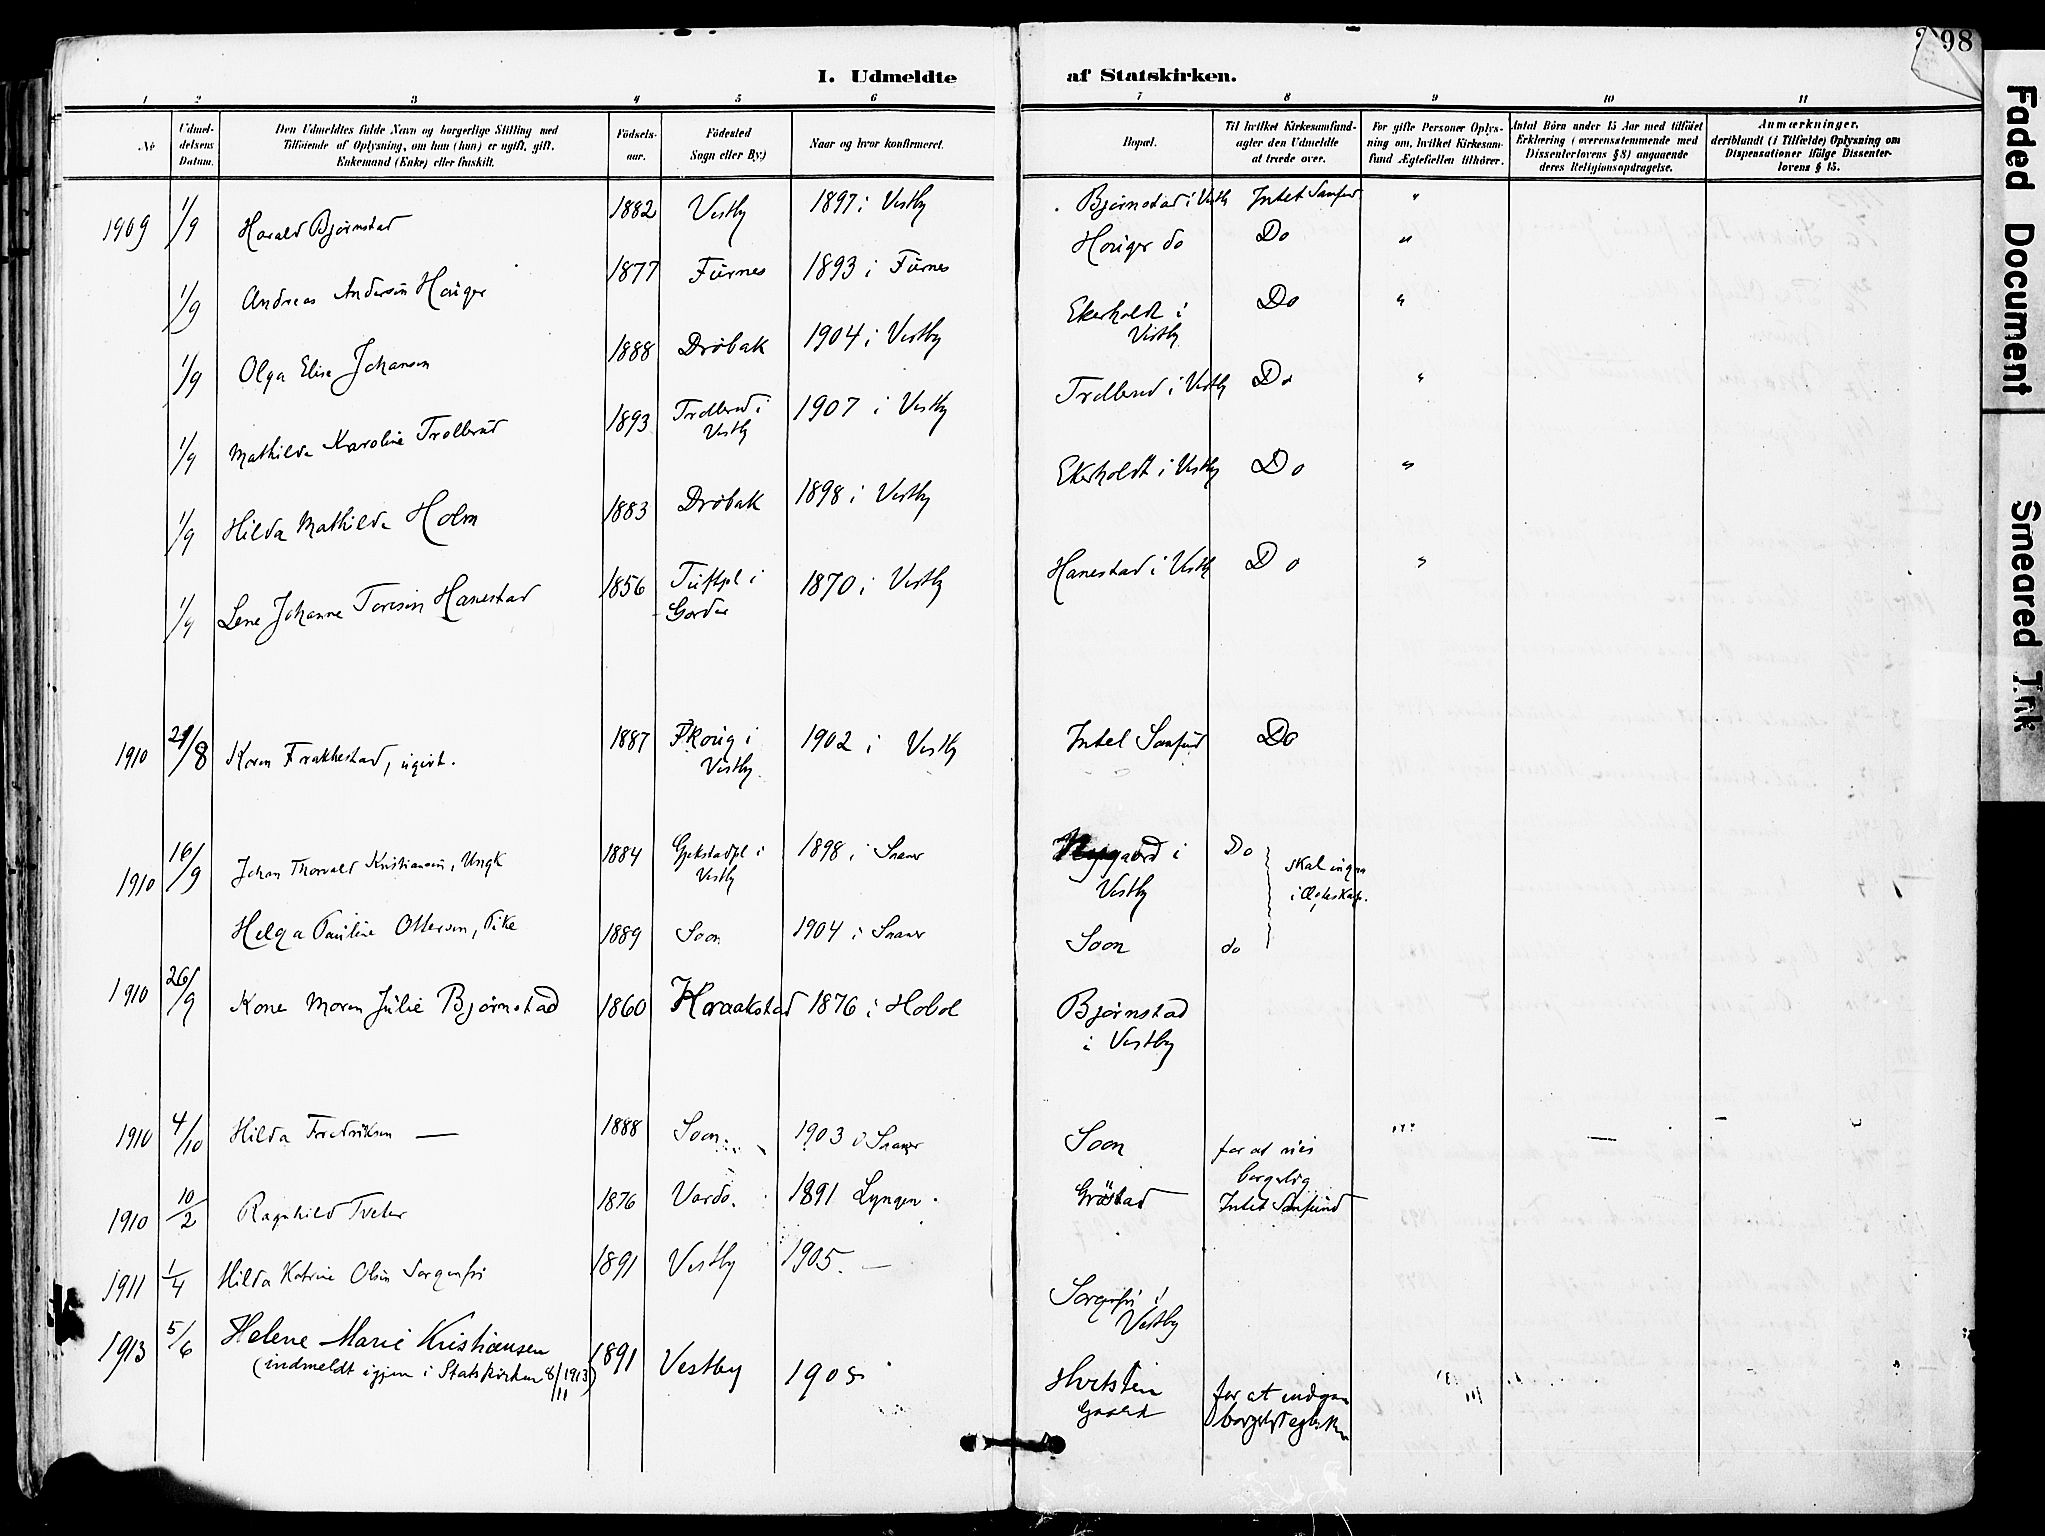 98
I. Udmeldte af Statskirken.
1 2 3 4 5 6 7 8 9 10 11
No
Udmel-
delsens
Datum.
Den Udmeldtes fulde Navn og borgerlige Stilling med
Tilføiende af Oplysning, om han (hun) er ugift, gift,
Enkemand (Enke) eller fraskilt.
Fødsels-
aar.
Fødested
Sogn eller By.)
Naar og hvor konfirmeret.
Bopæl.
Til hvilket Kirkesamfund-
agter den Udmeldte
at træde over.
For gifte Personer Oplys-
ning om, hvilket Kirkesam-
fund Ægtefællen tilhører.
Antal Børn under 15 Aar med tilføiet
Erklæring (overensstemmende med
Dissenterlovens §8) angaaende
deres Religionsopdragelse.
Anmærkninger,
deriblandt (i Tilfælde) Oplysning om
Dispensationer ifølge Dissenter-
lovens § 15.
1909 1/9 Harald Bjørnstad 1882 Vestby 1897 i Vestby Bjørnstad i Vestby Intet Samfund "
1/9 Andreas Andersen Hauger 1877 Furnes 1893 i Furnes Hauger do Do "
1/9 Olga Elise Johansen 1888 Drøbak 1904 i Vestby Ekerholdt i Do "
Vestby
1/9 Mathilde Karoline Trollerud 1893 Trollerud i 1907 i Vestby Trollerud i Vestby Do "
Vestby
1/9 Hilda Mathilde Holm 1883 Drøbak 1898 i Vestby Ekerholdt i Vestby Do "
1/9 Lene Johanne Toresen Hanestad 1856 i 1870 i Vestby Hanestad i Vestby Do "
1910 29/8 Karen Frakkestad, ugivt. 1887 i 1902 i Vestby Intet Samfund Do
Vestby
1910 16/9 Johan Thorvald Kristiansen, Ungk 1884 Gjekstadpl i 1898 i Saaner i Do skal indgaa
Vestby Vestby i Ægteskab.
Helga Pauline Ottersen, Pike 1889 Soon 1904 i Saaner Soon do
1910 26/9 Kone Maren Julie Bjørnstad 1860 Kraakstad 1876 i Hobøl Bjørnstad
i Vestby
1910 4/10 Hilda Fredriksen — 1888 Soon. 1903 Saaner Soon for at vies
borgerlig
1910 10/2 Ragnhild Tveter 1876 Vardø. 1891 Lyngen. Gråstad Intet Samfund
1911 1/4 Hilda Katrine Olsen Sorgenfri 1891 Vestby 1905. — Sorgenfri i
Vestby
1913 5/6 Helene Marie Kristiansen 1891 Vestby 1905 Hvitsten for at indgaa
(indmeldt igjen i Statskirken 8/11 1913) Gaard borgerligt egteskab
Faded Document
Smeared Ink